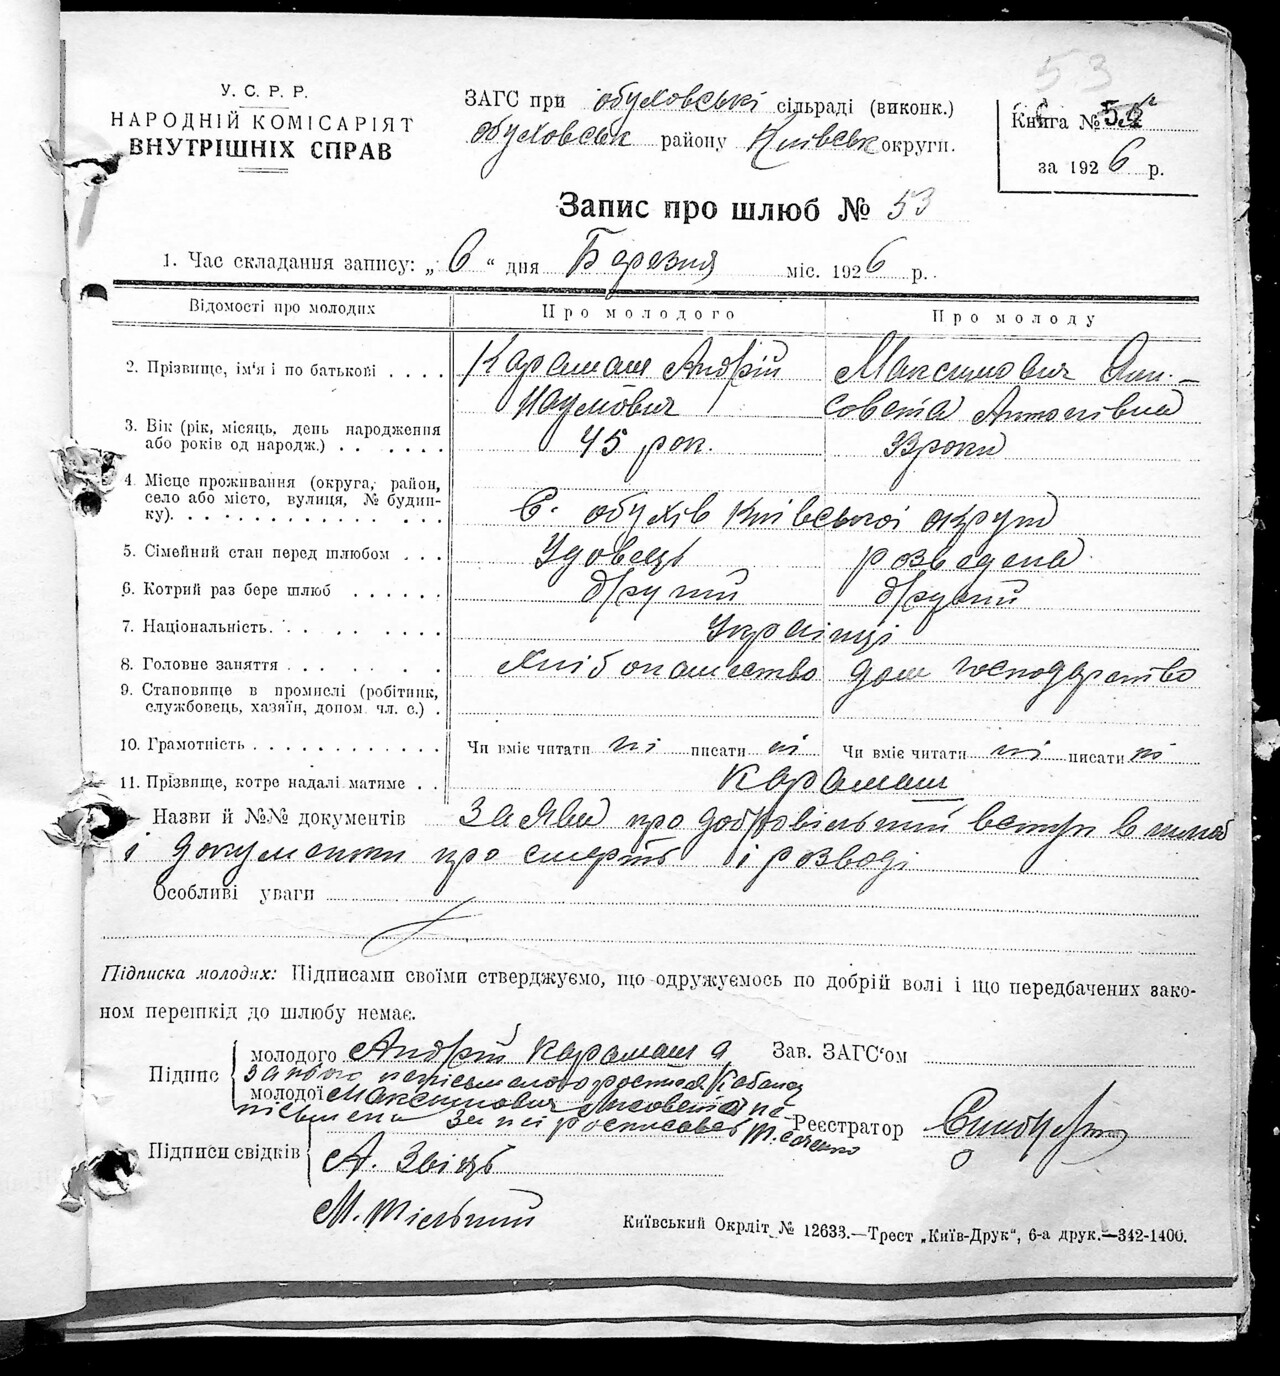 53
У. С. Р. Р.
НАРОДНІЙ КОМІСАРІЯТ
ВНУТРІШНІХ СПРАВ
ЗАГС при обуховські сільраді (виконк.)
обуховськ району Київськ округи.
Книга №
за 1926 р.
Запис про шлюб № 53
1. Час складання запису: „6“ дня Березня міс. 1926 р.
Відомості про молодих Про молодого Про молоду
2. Прізвище, ім'я і по батькові . . . . Карамаш Андрій Максимович Ли-
Наумович совета Антонівна
3. Вік (рік, місяць, день народження
або років од народж.) . . . . . . 45 рок. 33 роки
4. Місце проживання (округа, район,
село або місто, вулиця, № будин-
ку). . . . . . . . . . . . . . С. обухів Київської округи
5. Сімейний стан перед шлюбом . . . Удовець розведена
6. Котрий раз бере шлюб . . . . . . другий другий
7. Національність. . . . . . . . . Українці
8. Головне заняття . . . . . . . . Хлібопашество дом господарство
9. Становище в промислі (робітник,
службовець, хазяїн, допом. чл. с.) .
10. Грамотність . . . . . . . . . . . Чи вміє читати ні писати ні Чи вміє читати ні писати ні
11. Прізвище, котре надалі матиме . . Карамаш
Назви й №№ документів заява про добровільний вступ в шлюб
і документи про смерть і розводі
Особливі уваги
Підписка молодих: Підписами своїми стверджуємо, що одружуємось по добрій волі і що передбачених зако-
ном перешкід до шлюбу немає.
Підпис
молодого Андрій Карамаш а
за його неписьменого росписався
молодої Максимович Лисовета не
письмена за неї росписався
Зав. ЗАГС'ом
Реєстратор
Підписи свідків
А. Звіздь
М. Тільний
Київський Окрліт № 12633.—Трест „Київ-Друк“, 6-а друк.—342-1400.